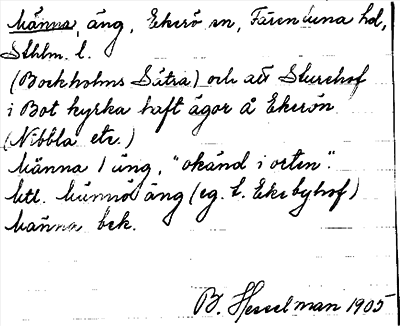 Männa, äng, Ekerö sn, Färentuna hd,
Sthlm. l.
(Bockholms Sätra) och att Sturehof
i Bot kyrka haft ägor å Ekerön
(Nibbla etc.)
Männa / äng, "okänd i orten".
Utl. Männö äng (eg. t. Ekebyhof)
Männa bek.
B. Hesselman 1905